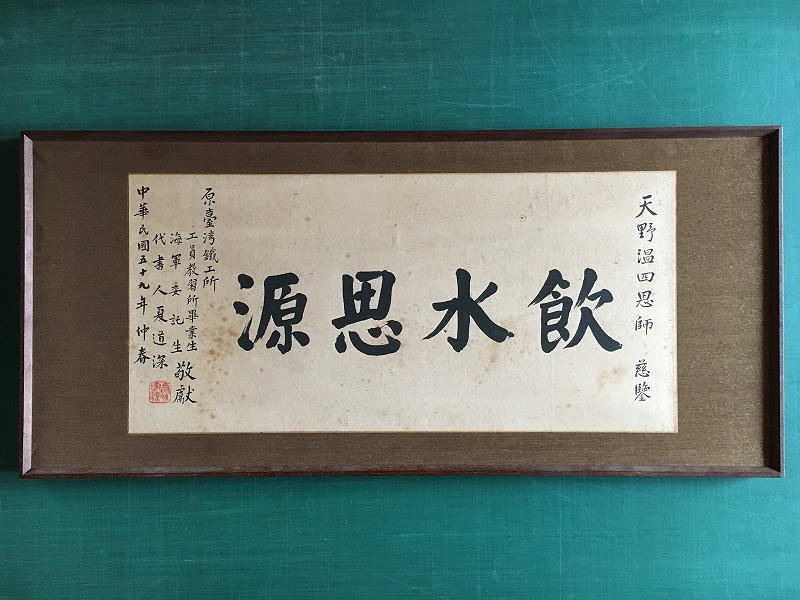 天野温四恩師 慈鑒
飲水思源
原臺湾鐵工所
工員教習所畢業生
海軍委託生
敬獻
代書人夏道深
中華民國五十九年仲春